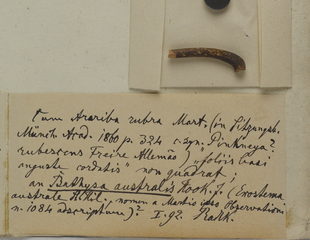 Cum Arariba rubra Mart. (in Sitzungsb.
Münch. Acad. 1860 p. 324 c. syn. Pinkneya?
rubescens Freire Allemão) "foliis basi
anguste cordatis" non quadrat;
an Bathysa australis Hook. f. (Exostema
australe St Hil., nomen a Martio ipso Observationi
n. 1084 adscriptum)? I. 92. Radlk.